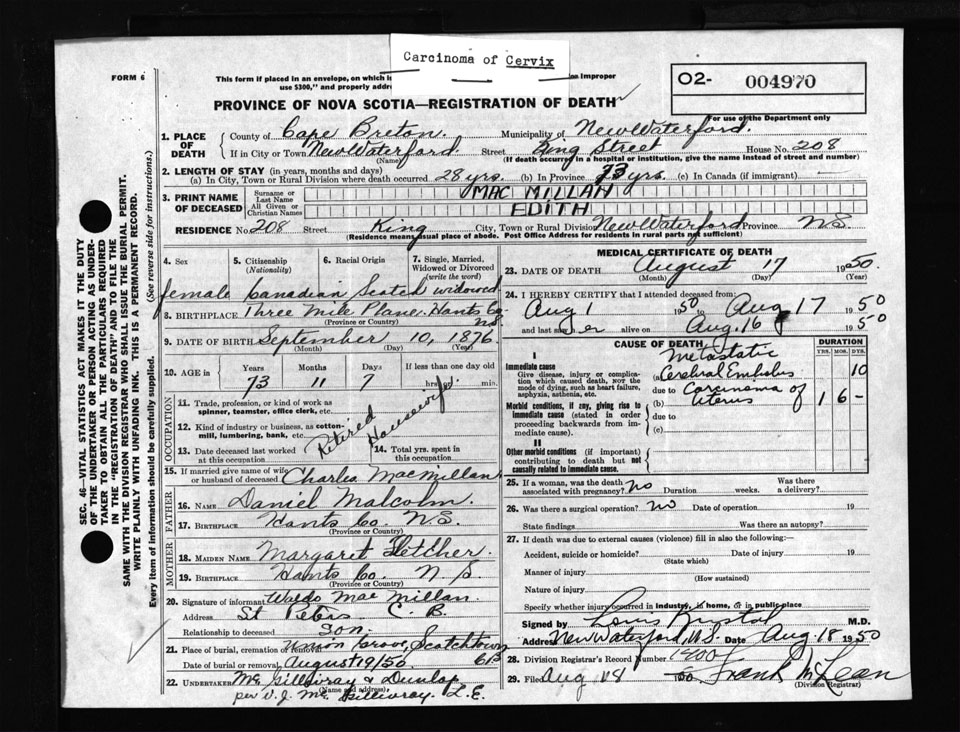 Carcinoma of Cervix
FORM 6
This form if placed in an envelope, on which is
an Improper
use $300," and properly addre
O2- 004970
PROVINCE OF NOVA SCOTIA—REGISTRATION OF DEATH
For use of the Department only
1. PLACE OF DEATH
County of Cape Breton. Municipality of New Waterford.
If in City or Town New Waterford. Street King Street House No. 208
(Name) (If death occurred in a hospital or institution, give the name instead of street and number)
2. LENGTH OF STAY (in years, months and days)
(a) In City, Town or Rural Division where death occurred 28 yrs. (b) In Province 73 yrs. (c) In Canada (if immigrant)
3. PRINT NAME OF DECEASED
Surname or Last Name MAC MILLAN
All Given or Christian Names EDITH
RESIDENCE No. 208 Street King City, Town or Rural Division New Waterford Province N.S.
(Residence means usual place of abode. Post Office Address for residents in rural parts not sufficient)
4. Sex
5. Citizenship (Nationality)
6. Racial Origin
7. Single, Married, Widowed or Divorced (write the word)
female Canadian Scotch widowed
8. BIRTHPLACE Three Mile Plane, Hants Co. N.S.
(Province or Country)
9. DATE OF BIRTH September 10, 1876
(Month) (Day) (Year)
10. AGE in
Years Months Days If less than one day
73 11 7 hrs. or min.
OCCUPATION
11. Trade, profession or kind of work as spinner, teamster, office clerk, etc.
12. Kind of industry or business, as cotton-mill, lumbering, bank, etc.
Retired Housewife
13. Date deceased last worked at this occupation
14. Total yrs. spent in this occupation
15. If married give name of wife or husband of deceased Charles MacMillan
FATHER
16. Name Daniel Malcolm.
17. Birthplace Hants Co. N.S.
(Province or Country)
MOTHER
18. Maiden Name Margaret Fletcher.
19. Birthplace Hants Co. N.S
(Province or Country)
20. Signature of informant Waldo MacMillan.
Address St Peters C.B.
Relationship to deceased Son.
21. Place of burial, cremation or removal Union Grove, Scotchtown
Date of burial or removal August 19/50 C.B.
22. UNDERTAKER McGillivray & Dunlop
(Name and address)
per V. J. McGillivray. L.E.
MEDICAL CERTIFICATE OF DEATH
23. DATE OF DEATH August 17 1950.
(Month) (Day) (Year)
24. I HEREBY CERTIFY that I attended deceased from:
Aug 1 1950 to Aug 17 1950
and last saw her alive on Aug. 16 1950
CAUSE OF DEATH
DURATION
YRS. MOS. DYS.
I
Immediate cause
Give disease, injury or complication which caused death, NOT the mode of dying, such as heart failure, asphyxia, asthenia, etc.
Metastatic
(a) Cerebral Embolus 10
due to Carcinoma of
(b) Uterus 1 6 —
Morbid conditions, if any, giving rise to immediate cause (stated in order proceeding backwards from immediate cause).
due to
(c)
II
Other morbid conditions (if important) contributing to death but not causally related to immediate cause.
25. If a woman, was the death associated with pregnancy? no Duration weeks. Was there a delivery?
26. Was there a surgical operation? no Date of operation 19
State findings Was there an autopsy?
27. If death was due to external causes (violence) fill in also the following:—
Accident, suicide or homicide? Date of injury 19
(State which)
Manner of injury
(How sustained)
Nature of injury
Specify whether injury occurred in industry, in home, or in public place
Signed by Louis M.D.
Address New Waterford, N.S. Date Aug. 18 1950
28. Division Registrar's Record Number 1400
29. Filed Aug 18 1950. Frank McLean
(Division Registrar)
SEC. 46—VITAL STATISTICS ACT MAKES IT THE DUTY
OF THE UNDERTAKER OR PERSON ACTING AS UNDER-
TAKER TO OBTAIN ALL THE PARTICULARS REQUIRED
IN THE "REGISTRATION OF DEATH" AND TO FILE THE
SAME WITH THE DIVISION REGISTRAR WHO SHALL ISSUE THE BURIAL PERMIT.
WRITE PLAINLY WITH UNFADING INK. THIS IS A PERMANENT RECORD.
Every item of information should be carefully supplied. (See reverse side for instructions.)